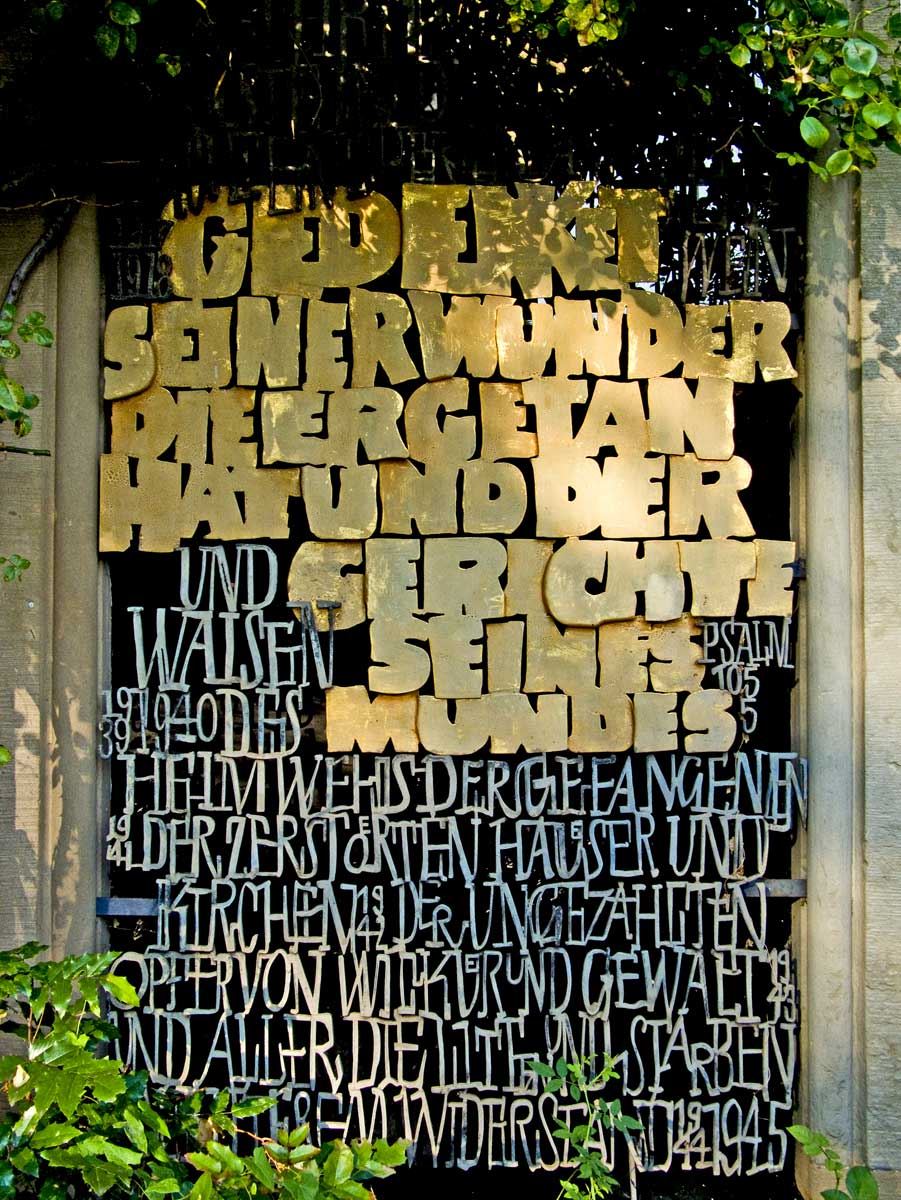 GEDENKET
SEINER WUNDER
DIE ER GETAN
HAT UND DER
GERICHTE
SEINES
MUNDES
PSALM
105
5
UND
WAISEN
1939 1940 DES
HEIMWEHS DER GEFANGENEN
1941 DER ZERSTÖRTEN HÄUSER UND
KIRCHEN 1942 DER UNGEZÄHLTEN
OPFER VON WILLKÜR UND GEWALT 1943
UND ALLER DIE LITTEN UND STARBEN
IM WIDERSTAND 1944 1945